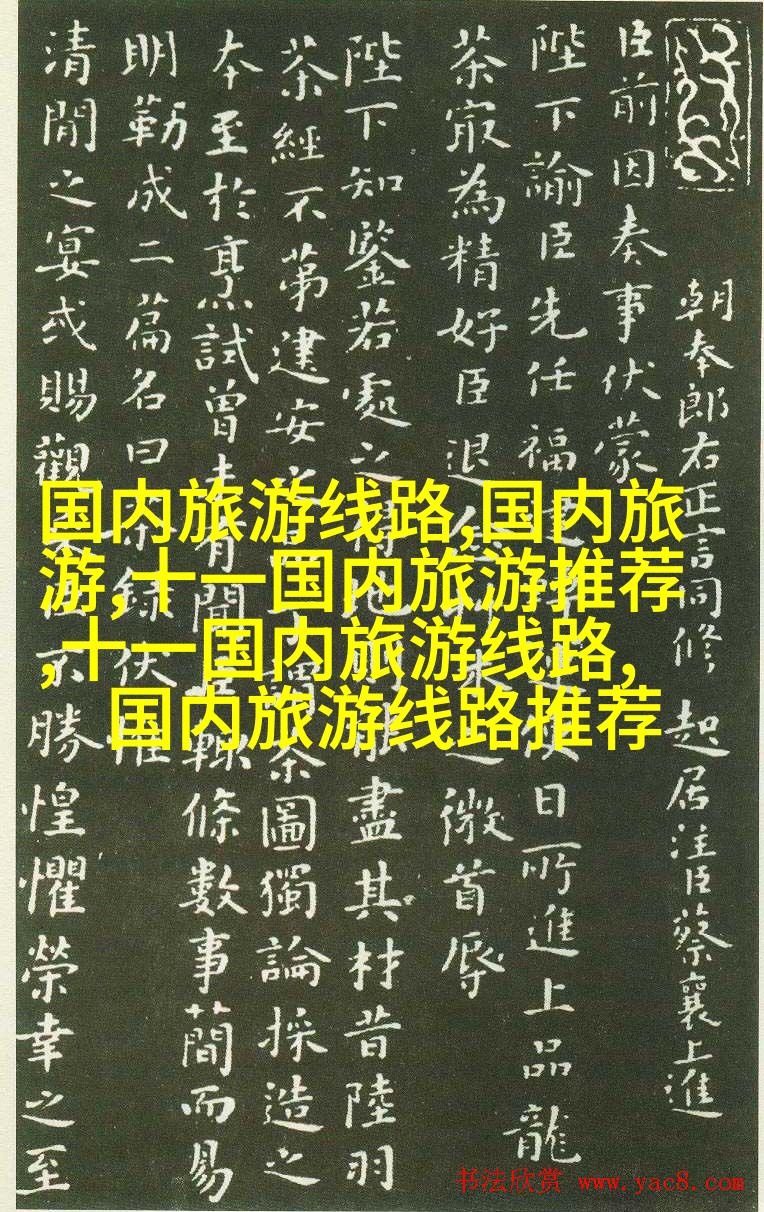 朝奉郎右正言同修起居注臣蔡襄上進
臣前因奏事伏蒙
陛下諭臣先任福建使日所進上品龍
茶寂為精好臣退之微首辱
陛下知鑒若處之得地則能盡其材昔陸羽
茶經不第建安之品謂茶圖獨論採造之
本至於烹試曾未有聞臣輒條數事簡而易
明勒成二篇名曰茶錄伏惟
清閒之宴或賜觀臣不勝惶懼榮幸之至
国内旅游线路,国内旅
游,十一国内旅游推荐
,十一国内旅游线路,
国内旅游线路推荐
书法欣赏 www.yac8.com